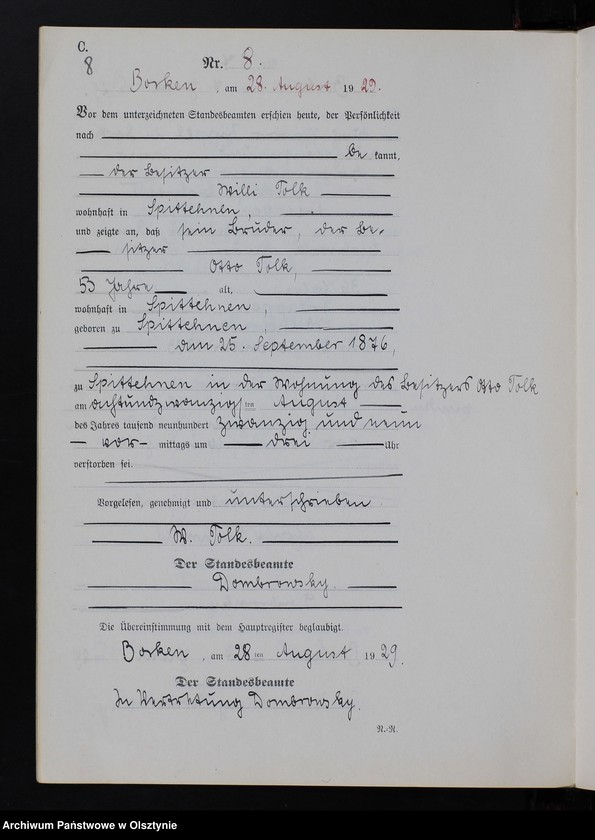 C.
8
Nr. 8.
Borken, am 28. August 1929.
Vor dem unterzeichneten Standesbeamten erschien heute, der Persönlichkeit
nach
be kannt,
der Besitzer
Willi Tolk
wohnhaft in Spittehnen,
und zeigte an, daß sein Bruder, der Be-
sitzer
Otto Tolk,
53 Jahre alt,
wohnhaft in Spittehnen,
geboren zu Spittehnen,
am 25. September 1876,
zu Spittehnen in der Wohnung des Besitzers Otto Tolk
am achtundzwanzigsten August
des Jahres tausend neunhundert zwanzig und neun
vor- mittags um drei Uhr
verstorben sei.
Vorgelesen, genehmigt und unterschrieben
W. Tolk.
Der Standesbeamte
Dombrowsky.
Die Übereinstimmung mit dem Hauptregister beglaubigt.
Borken, am 28ten August 1929.
Der Standesbeamte
In Vertretung Dombrowsky.
R.-R.
Archiwum Państwowe w Olsztynie